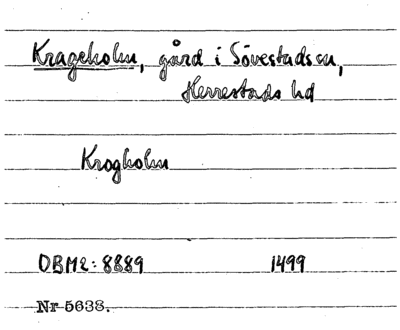 Krageholm, gård i Sövestads sn,
Herrestads hd
Krogholm
DBM2: 8889 1499
Nr 5638.